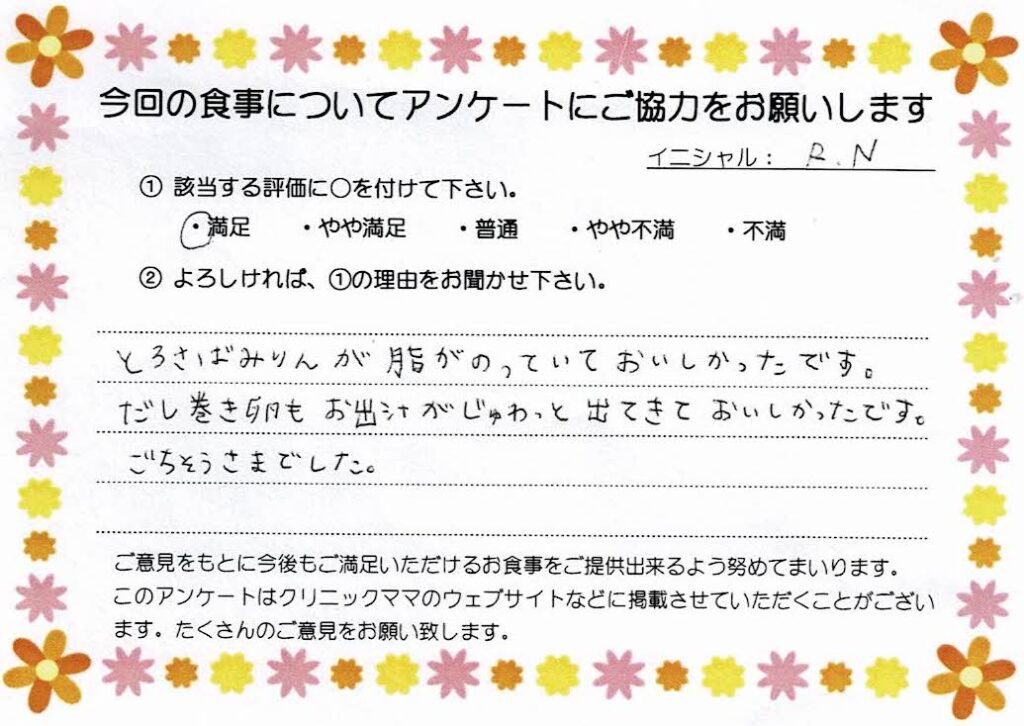 今回の食事についてアンケートにご協力をお願いします
イニシャル： R.N
① 該当する評価に〇を付けて下さい。
・満足 ・やや満足 ・普通 ・やや不満 ・不満
② よろしければ、①の理由をお聞かせ下さい。
とろさばみりんが脂がのっていておいしかったです。
だし巻き卵もお出汁がじゅわっと出てきておいしかったです。
ごちそうさまでした。
ご意見をもとに今後もご満足いただけるお食事をご提供出来るよう努めてまいります。
このアンケートはクリニックママのウェブサイトなどに掲載させていただくことがござい
ます。たくさんのご意見をお願い致します。